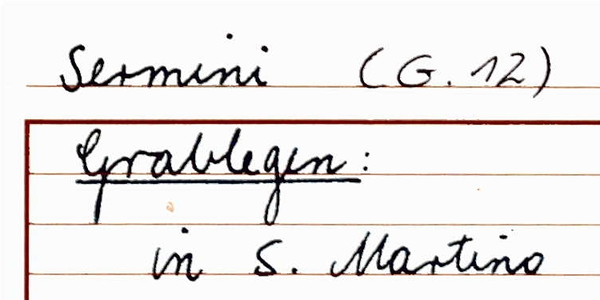 Sermini (G. 12)
Grablegen:
in S. Martino